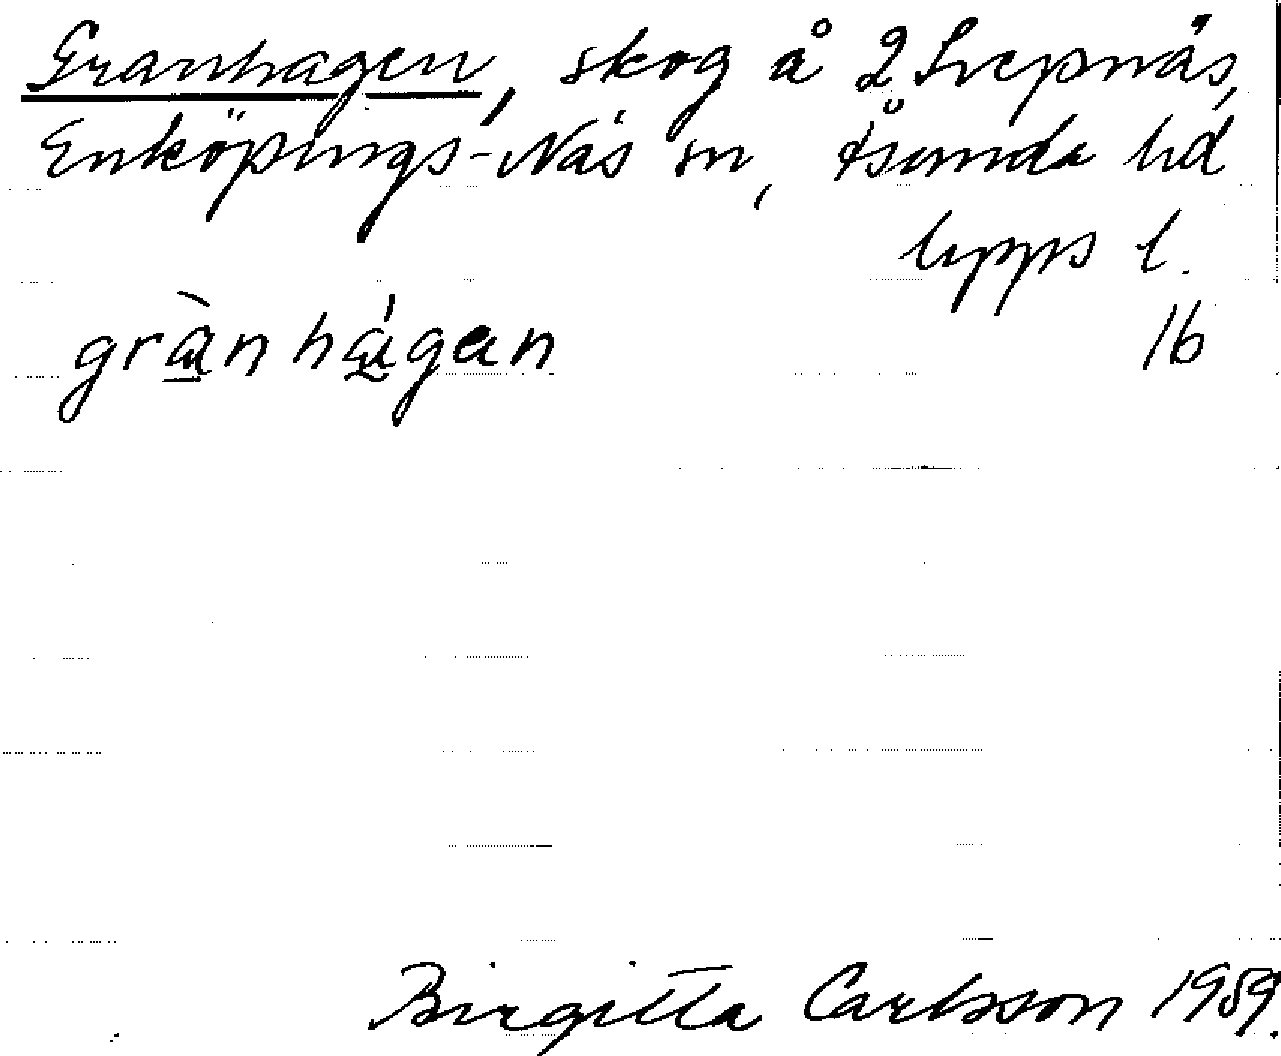 Granhagen, skog å 2 Svepnäs,
Enköpings-Näs sn, Åsunda hd
Upps l.
grànhágen 16
Birgitta Carlsson 1959.